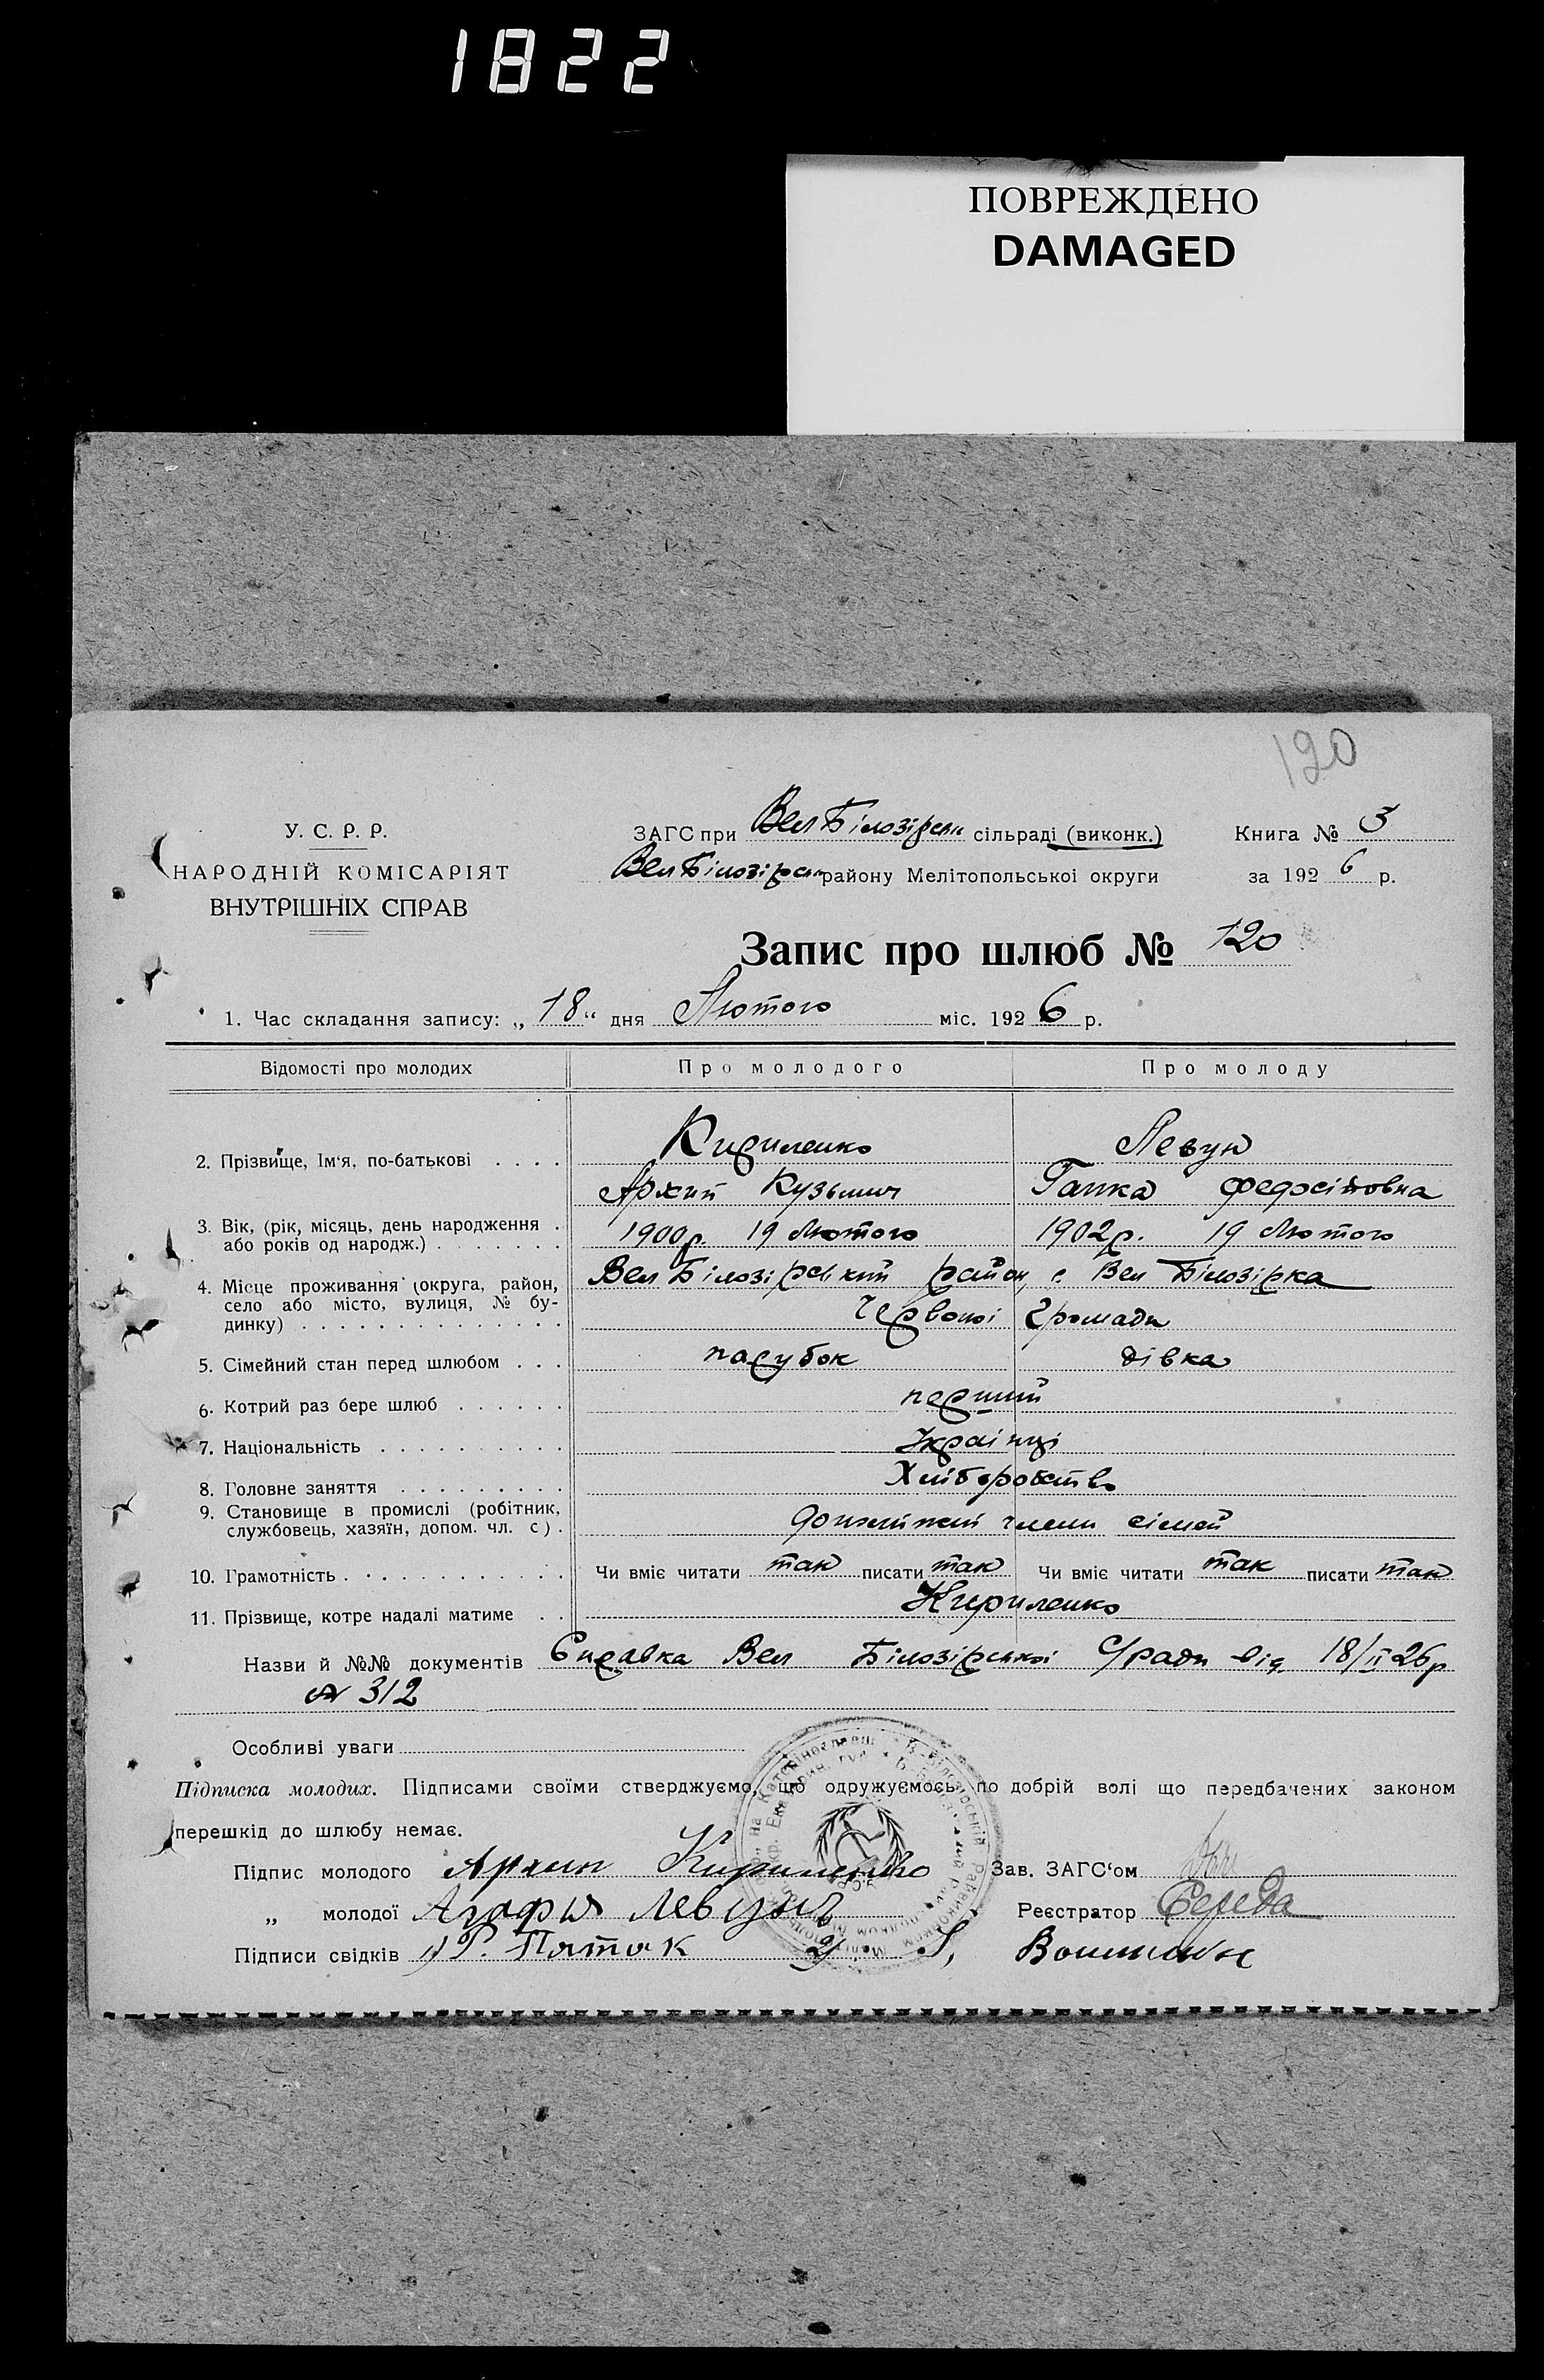 1822
ПОВРЕЖДЕНО
DAMAGED
120
У. С. Р. Р.
НАРОДНІЙ КОМІСАРІЯТ
ВНУТРІШНІХ СПРАВ
ЗАГС при Вел Білозірськ сільраді (виконк.)
Вел Білозірськ району Мелітопольської округи
Книга № 3
за 1926 р.
Запис про шлюб № 120
1. Час складання запису: „18“ дня Лютого міс. 1926 р.
Відомості про молодих Про молодого Про молоду
2. Прізвище, Ім'я, по-батькові . . . . Кириленко Левун
Архип Кузьмич Гапка
3. Вік, (рік, місяць, день народження . або років од народж.) . . . . . . . 1900р. 19 Лютого 1902р. 19 Лютого
4. Місце проживання (округа, район, село або місто, вулиця, № будинку) . . . . . . . . . . . . . . Вел Білозірський район, с. Вел Білозірка
Червоної Громади
5. Сімейний стан перед шлюбом . . . парубок дівка
6. Котрий раз бере шлюб . . . . . . перший
7. Національність . . . . . . . . . . Українці
8. Головне заняття . . . . . . . . . Хліборобство
9. Становище в промислі (робітник, службовець, хазяїн, допом. чл. с) . члени сімей
10. Грамотність . . . . . . . . . . . . Чи вміє читати так писати так Чи вміє читати так писати так
11. Прізвище, котре надалі матиме . . Кириленко
Назви й №№ документів Справка Вел Білозірської С/ради від 18/II 26р
№ 312
Особливі уваги
Підписка молодих. Підписами своїми стверджуємо, що одружуємось по добрій волі що передбачених законом
перешкід до шлюбу немає.
Підпис молодого Архип Кириленко Зав. ЗАГС'ом
„ молодої Агафия Левунъ Реєстратор Середа
Підписи свідків 1) Р. Пятак 2)